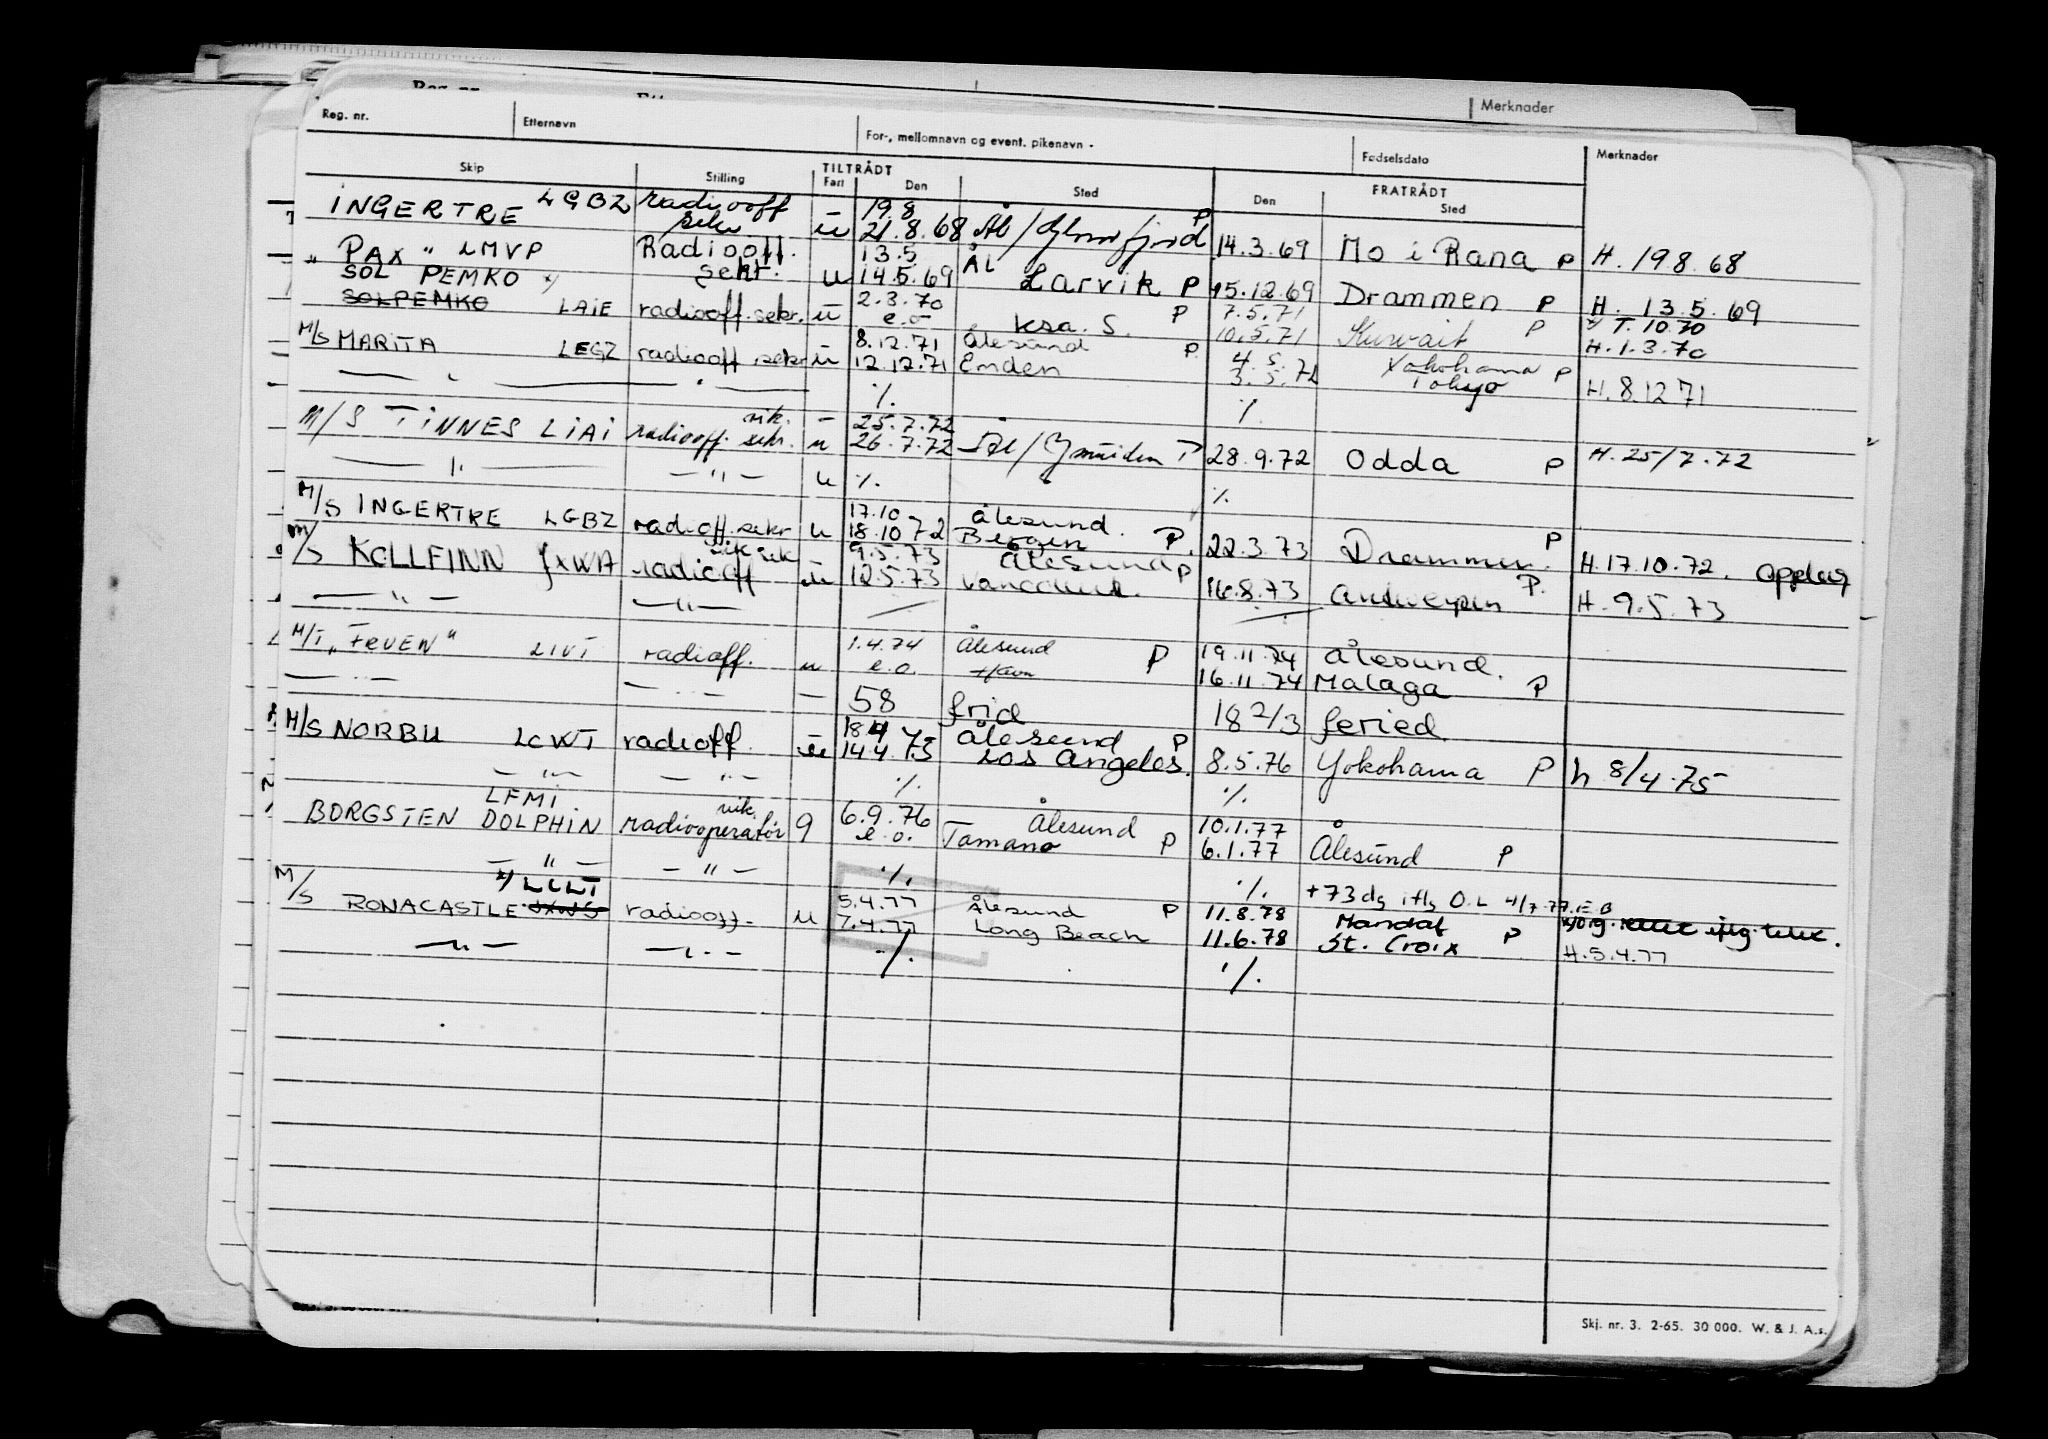 Merknader
Reg. nr. Etternavn For-, mellomnavn og event. pikenavn · Fødselsdato Merknader
Skip Stilling TILTRÅDT Fart Den Sted Den FRATRÅDT Sted
INGERTRE LGBZ radiooff sekr u 19.8 21.8.68 Ål / Glomfjord P 14.3.69 Mo i Rana P H. 198.68
" PAX " LMVP Radiooff. sekr. u 13.5 14.5.69 ÅL Larvik P 15.12.69 Drammen P H. 13.5.69
SOL PEMKO x/ x/ T. 10.70
SOLPEMKO LAIE radiooff. sekr. u 2.3.70 e.o P 7.5.71 10.5.71 Kuwait P H. 1.3.70
M/S MARITA LEGZ radiooff sekr u 8.12.71 12.12.71 Ålesund Emden P 4.5. 3.5.72 Yokohama Tokyo P H. 8.12 71
— " — " — ·/. ·/.
M/S TINNES LIAI radiooff. vik. sekr. u 25.7.72 26.7.72 Ål / Ymuiden P 28.9.72 Odda P H. 25/7.72
— " — — " — u ·/. ·/.
M/S INGERTRE LGBZ radioff. sekr u 17.10 18.10 72 Ålesund Bergen P. 22.3.73 Drammen. P H. 17.10.72. Opplag
M/S KOLLFINN JXWA radiooff vik sek u 9.5.73 12.5.73 Ålesund P 16.8.73 Antwerpen P. H. 9.5.73
— " — — " —
M/T " LIVT radioff. u 1.4.74 e.o. Ålesund Havn P 19.11.74 16.11.74 Ålesund. Malaga P
— " — — " — — 58 frid 18 2/3 feried
M/S NORBU LCWT radioff. u 18 4 75 14.4.75 Ålesund Los Angeles. P 8.5.76 Yokohama P h 8/4.75
— " — — " — ·/. ·/.
LFMI
BORGSTEN DOLPHIN vik. radiooperatør 9 6.9.76 e.o. Ålesund Tamano P 10.1.77 6.1.77 Ålesund P
— " — — " — ·/. ·/. +73 dg iflg O.L 4/7.77. E B
x/ LCLT
M/S RONACASTLE radiooff. u 5.4.77 7.4.77 Ålesund Long Beach P 11.8.78 11.6.78 Mandal St. Croix P H. 5.4.77
— " — — " — ·/. ·/.
Skj. nr. 3. 2-65. 30 000. W. & J. A.s.